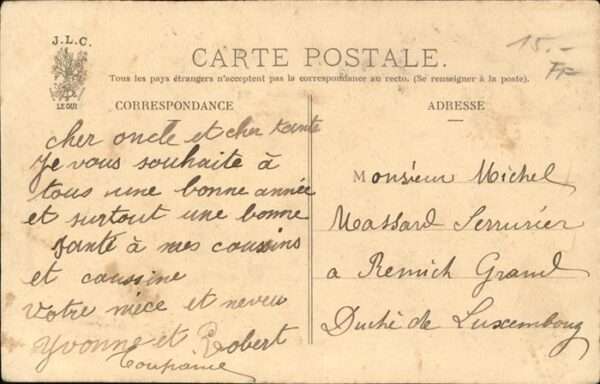 J.L.C.
LE GUI
15.-
FF
CARTE POSTALE.
Tous les pays étrangers n'acceptent pas la correspondance au recto. (Se renseigner à la poste).
CORRESPONDANCE
ADRESSE
cher oncle et cher tante
Je vous souhaite à
tous une bonne année
et surtout une bonne
santé à mes coussins
et coussine
Votre nièce et neveu
Yvonne et Robert
Monsieur Michel
Massard Serrurier
a Remich Grand
Duché de Luxemboug